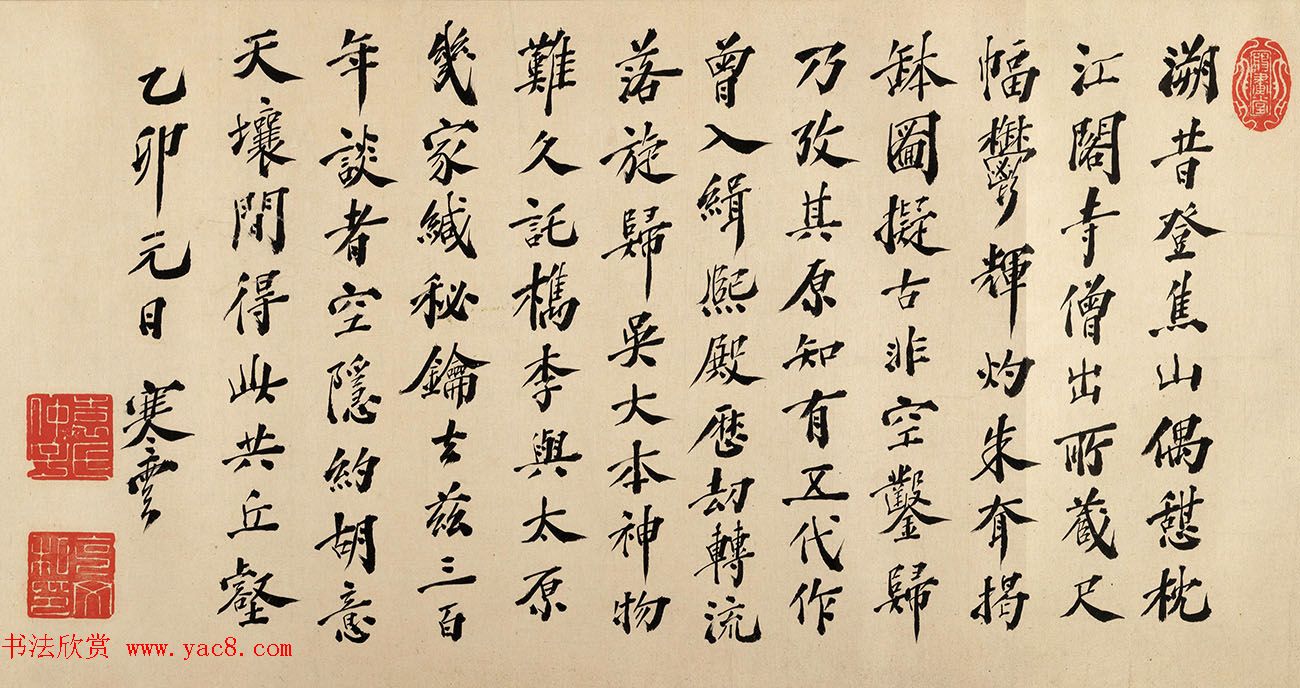 溯昔登焦山偶憇枕
江閣寺僧出所藏尺
幅鬱輝灼朱耷揭
缽圖擬古非空鑿歸
乃攷其原知有五代作
曾入緝熙殿歷劫轉流
落旋歸吳大本神物
難久託檇李與太原
幾家緘秘鑰去茲三百
年談者空隱約胡意
天壤間得此共丘壑
乙卯元日 寒雲
书法欣赏 www.yac8.com